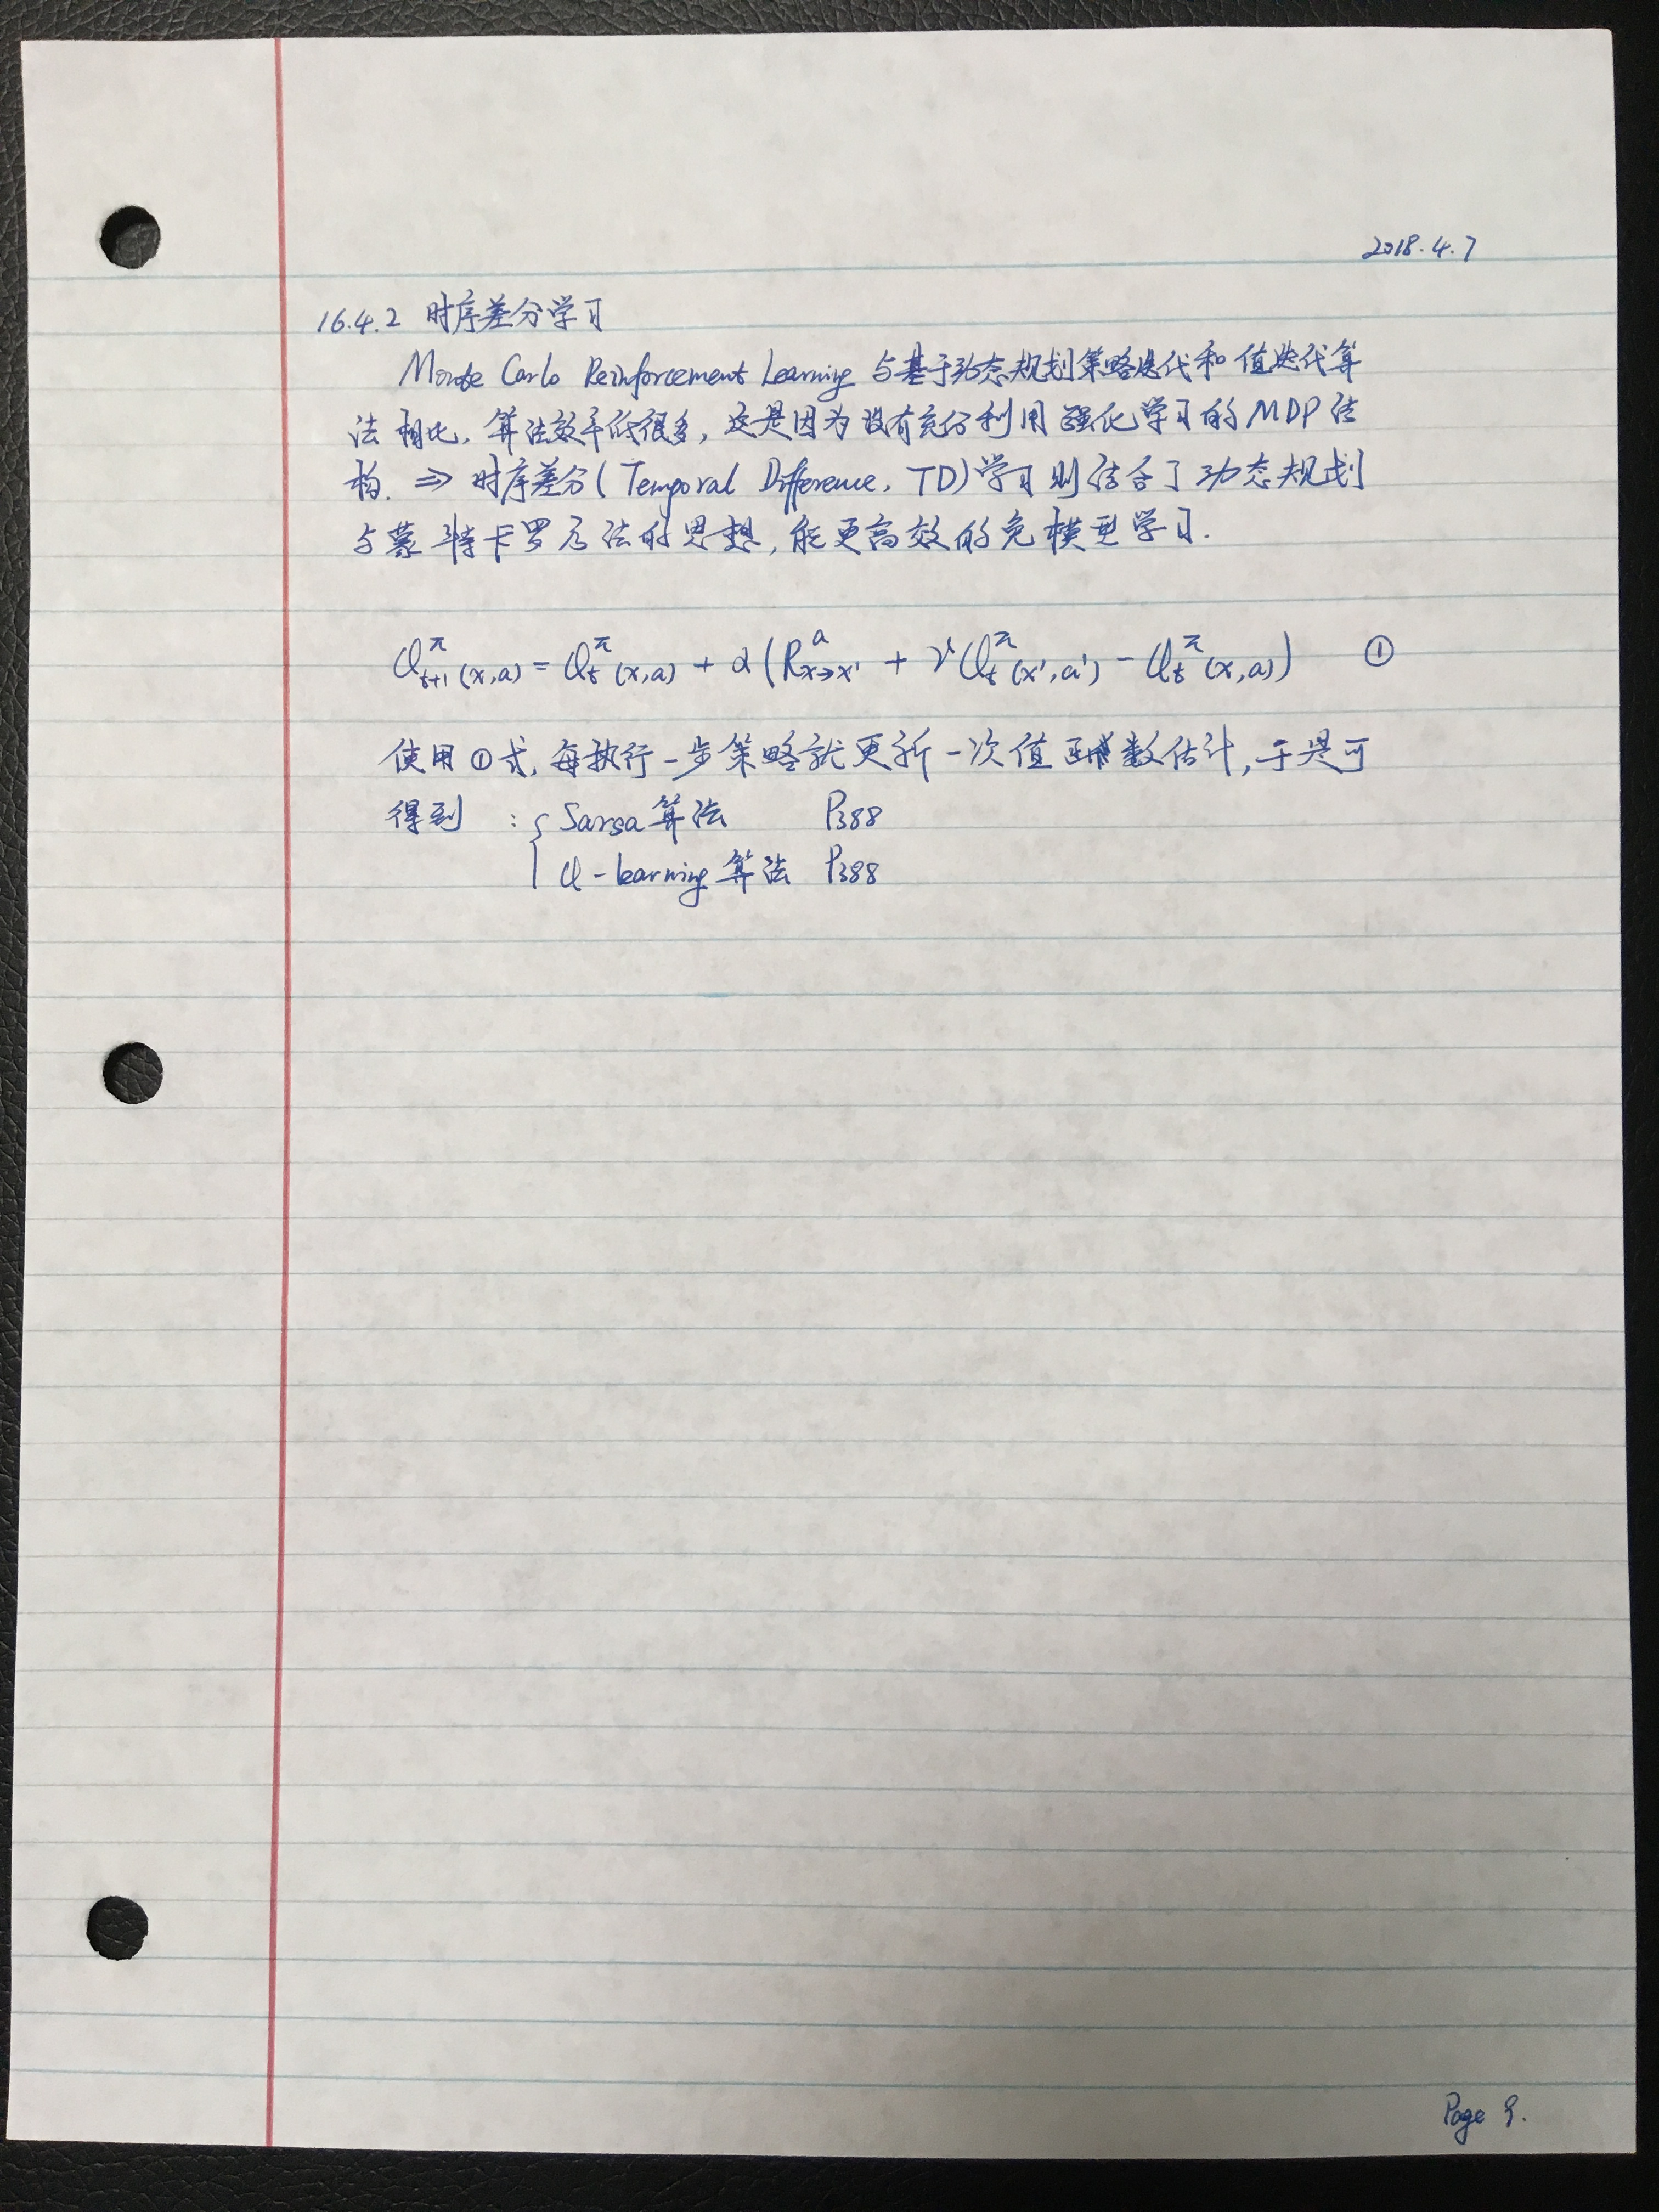 2018.4.7
16.4.2 时序差分学习
Monte Carlo Reinforcement Learning 与基于动态规划策略迭代和值迭代算
法相比, 算法效率低很多, 这是因为没有充分利用强化学习的MDP结
构. ⇒ 时序差分(Temporal Difference, TD)学习则结合了动态规划
与蒙特卡罗方法的思想, 能更高效的免模型学习.
Q^π_{t+1}(x,a) = Q^π_t(x,a) + α(R^a_{x→x'} + γQ^π_t(x',a') - Q^π_t(x,a)) ①
使用①式, 每执行一步策略就更新一次值函数估计, 于是可
得到 : { Sarsa算法 P388
Q-learning算法 P388
Page 9.